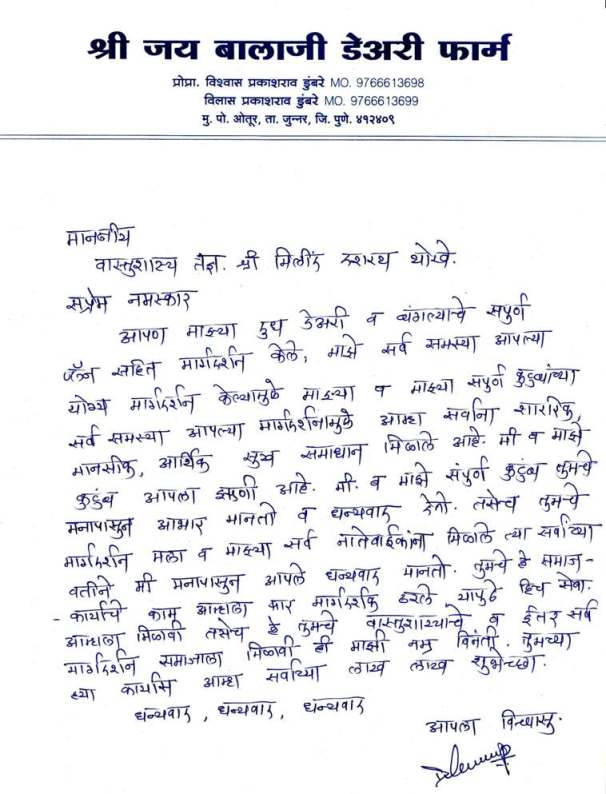 श्री जय बालाजी डेअरी फार्म
प्रोप्रा. विश्वास प्रकाशराव डुंबरे MO. 9766613698
विलास प्रकाशराव डुंबरे MO. 9766613699
मु. पो. ओतूर, ता. जुन्नर, जि. पुणे. ४१२४०९
माननीय
वास्तुशास्त्र तज्ञ. श्री मिलींद दशरथ थोरवे.
सप्रेम नमस्कार
आपण माझ्या दुध डेअरी व बंगल्याचे संपुर्ण
प्लॅन सहित मार्गदर्शन केले, माझे सर्व समस्या आपल्या
योग्य मार्गदर्शन केल्यामुळे माझ्या व माझ्या संपुर्ण कुटुंबांच्या
सर्व समस्या आपल्या मार्गदर्शनामुळे आम्हा सर्वांना शाररिक,
मानसीक, आर्थिक सुख समाधान मिळाले आहे. मी व माझे
कुटुंब आपला ऋणी आहे. मी. व माझे संपुर्ण कुटुंब तुमचे
मनापासुन आभार मानतो व धन्यवाद देतो. तसेच तुमचे
मार्गदर्शन मला व माझ्या सर्व नातेवाईकांना मिळाले त्या सर्वांच्या
वतीने मी मनापासुन आपले धन्यवाद मानतो. तुमचे हे समाज-
- कार्याचे काम आम्हाला फार मार्गदर्शक ठरले यापुढे हिच सेवा.
आम्हाला मिळावी तसेच हे तुमचे वास्तुशास्त्राचे व ईतर सर्व
मार्गदर्शन समाजाला मिळावी ही माझी नम्र विनंती. तुमच्या
ह्या कार्यास आम्हा सर्वांच्या लाख लाख शुभेच्छा.
धन्यवाद, धन्यवाद, धन्यवाद
आपला विश्वासु.